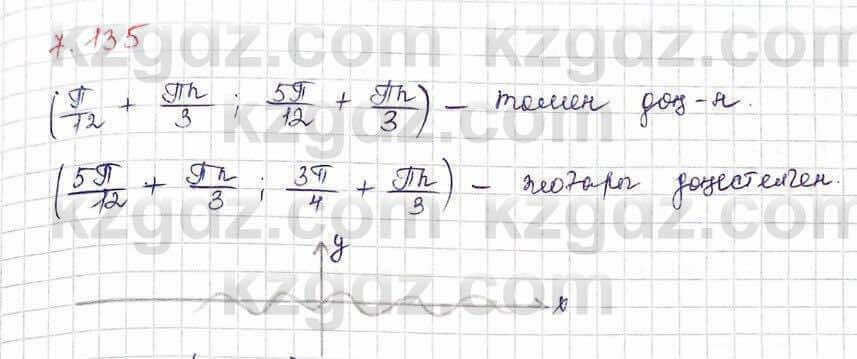 7.135
(π/12 + πn/3 ; 5π/12 + πn/3) – төмен дөң-н.
(5π/12 + πn/3 ; 3π/4 + πn/3) – жоғары дөңестелген.
y
x
kzgdz.com kzgdz.com
kzgdz.com
kzgdz.com kzgdz.com
kzgdz.com